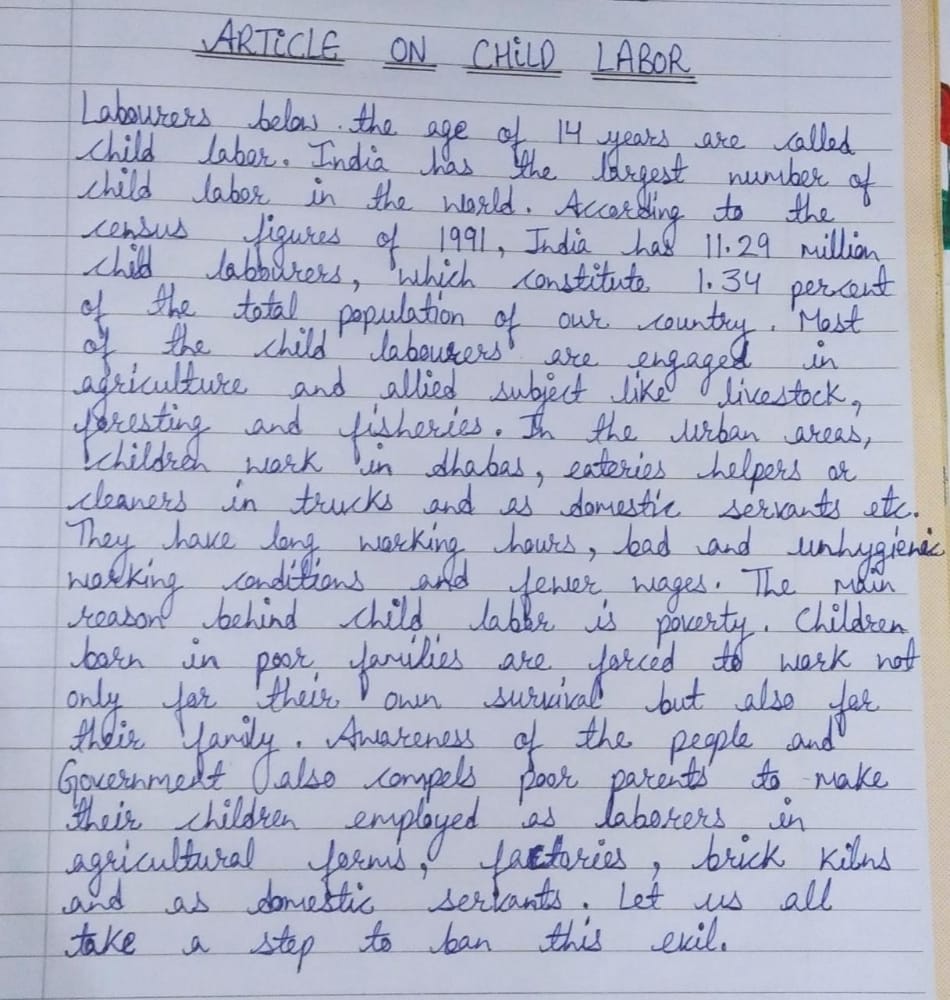 ARTICLE ON CHILD LABOR
Labourers below the age of 14 years are called
child labor. India has the largest number of
child labor in the world. According to the
census figures of 1991, India has 11.29 million
child labourers, which constitute 1.34 percent
of the total population of our country. Most
of the child labourers are engaged in
agriculture and allied subject like livestock,
foresting and fisheries. In the urban areas,
children work in dhabas, eateries helpers or
cleaners in trucks and as domestic servants etc.
They have long working hours, bad and unhygienic
working conditions and fewer wages. The main
reason behind child labor is poverty. Children
born in poor families are forced to work not
only for their own survival but also for
their family. Awareness of the people and
Government also compels poor parents to make
their children employed as laborers in
agricultural forms, factories, brick kilns
and as domestic servants. Let us all
take a step to ban this evil.